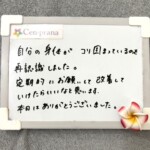 Cen prana
自分の身体が コリ固まっているのを
再認識しました。
定期的にお願いして改善して
いけたらいいなと思います。
本日はありがとうございました。